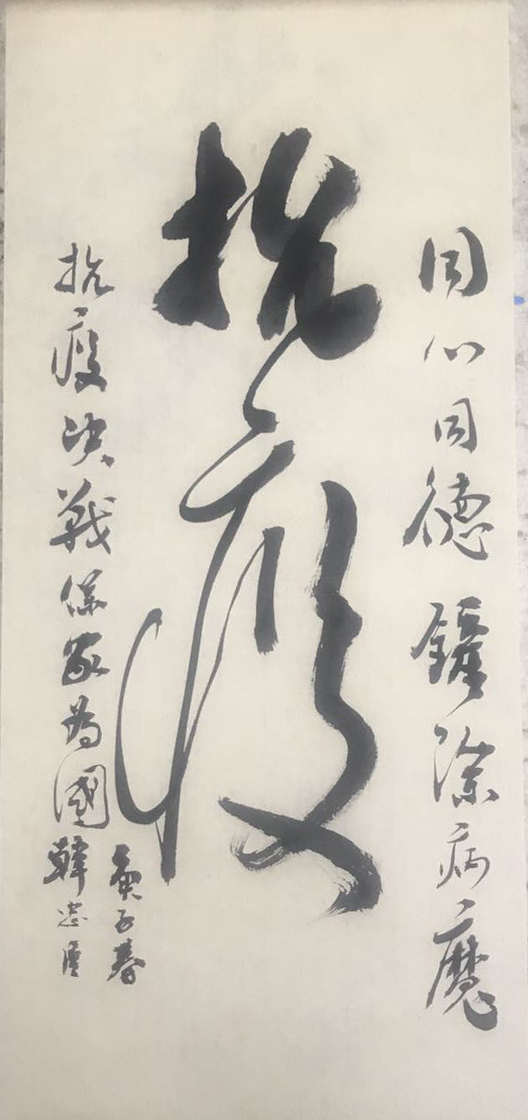 同心同德鏟除病魔
抗疫
抗疫决戰保家為國
庚子春
韓忠